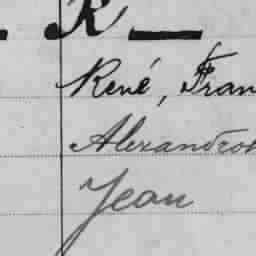 . R —
René, Fran
Alexandro
Jean